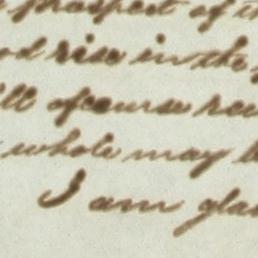 prospect of
rise in the
ofcourse
whole may
I am glad